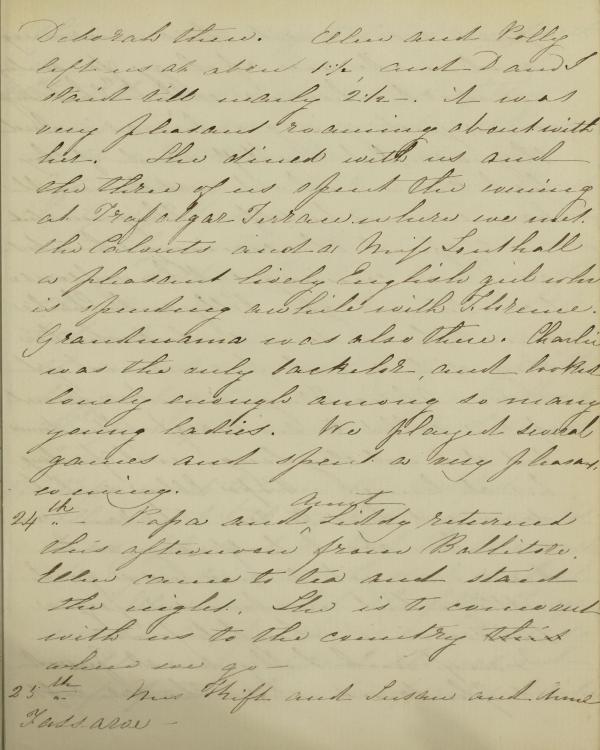 Deborah there. Ellen and Polly
left us at about 1½, and D and I
staid till nearly 2½ -. it was
very pleasant roaming about with
her. She dined with us and
the three of us spent the evening
at Trafalgar Terrace where we met
the Calverts and a Miss Southall
a pleasant lively English girl who
is spending awhile with Florence.
Grandmama was also there. Charlie
was the only bachelor, and looked
lonely enough among so many
young ladies. We played several
games and spent a very pleasant
evening.
24th - Papa and Aunt Liddy returned
this afternoon from Ballitore.
Ellen came to tea and staid
the night. She is to come out
with us to the country this
when we go -
25th Mrs and Susan and Anne
Fassaroe -